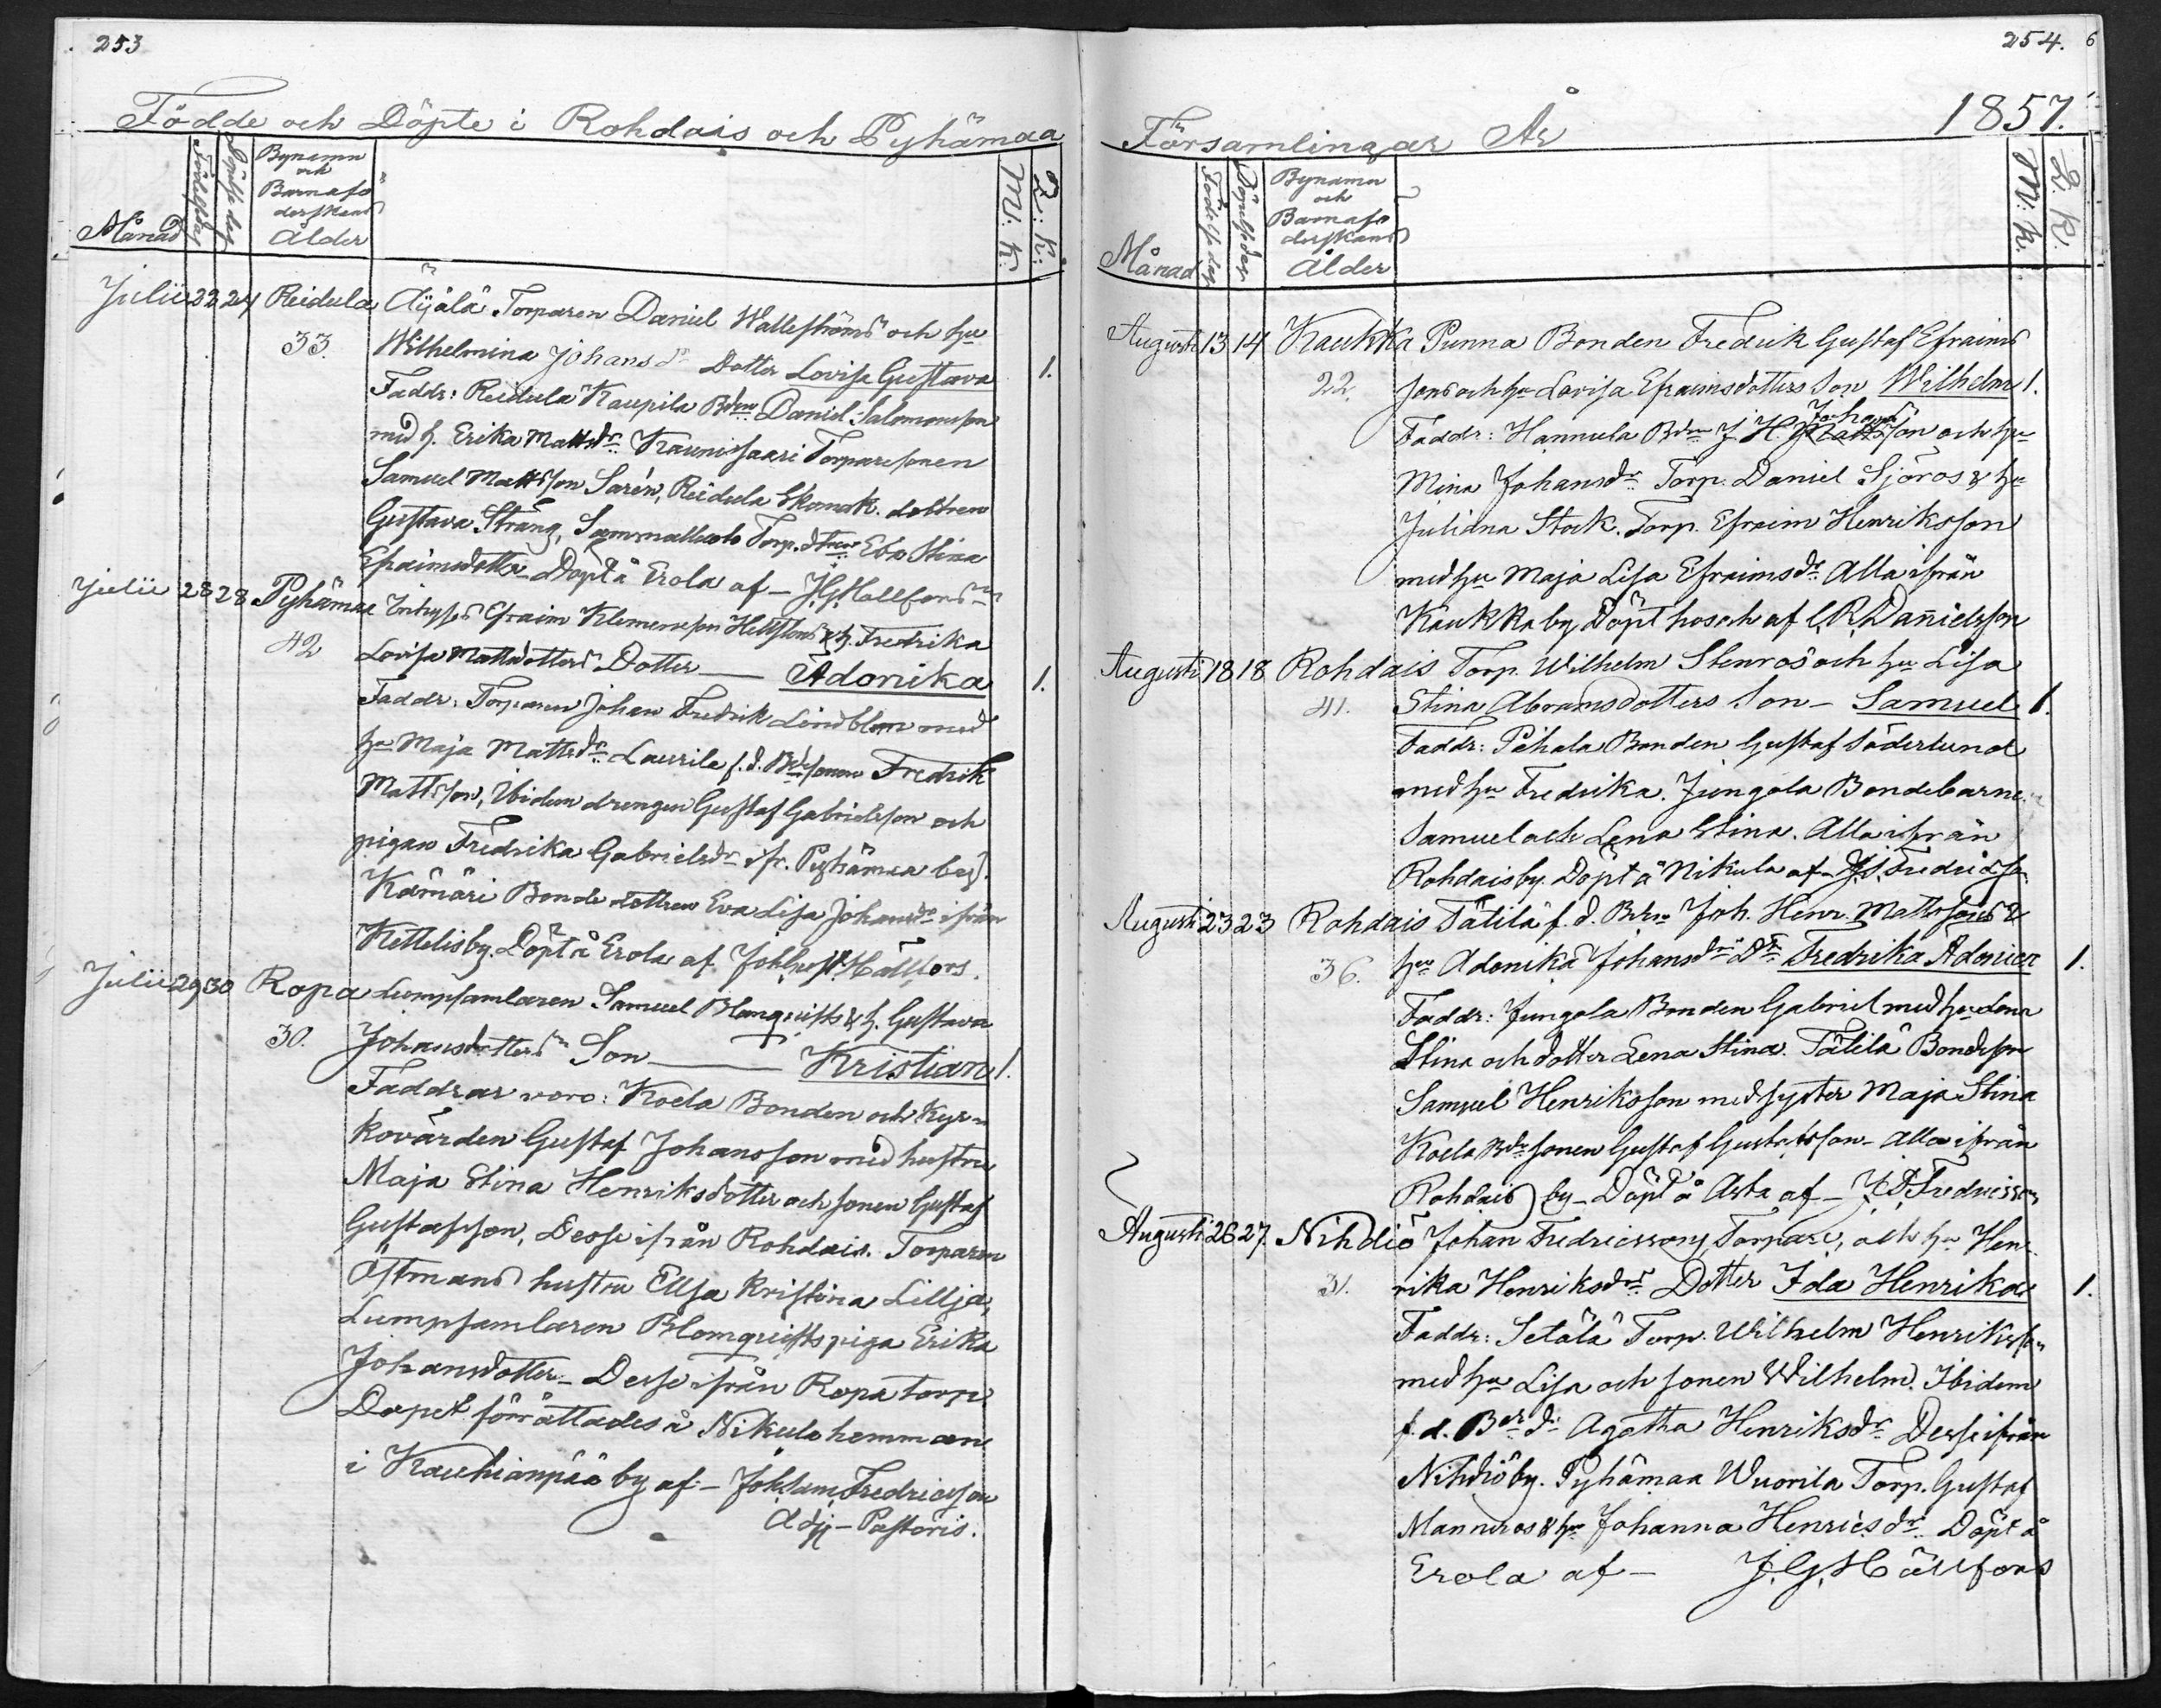 253
Födde och Döpte i Rohdais och Pyhämaa
Månad
Födelsedag
Döpelse dag
Bynamn
och
Barnafö
derskans
Ålder
M: K:
Q: K:
Julii 22 24 Reidula Äijälä Torparen Daniel Wallströms och hu
33. Wilhelmina Johans dr Dotter Lovisa Gustava 1.
Faddr: Reidula Kaupila Bdn Daniel Salomonsson
med h. Erika Mattsdr Kaunissaari Torparesonen
Samuel Mattsson Sarén, Reidula Skomak. dottren
Gustava Sträng, Sammallisto Torp. dtren Eva Stina
Efraimsdotter Döpt å Erola af — J.G. Hallfors
Julii 28 28 Pyhämaa Efraim Klemensson Hellstens & h. Fredrika
42 Lovisa Mattsdotters Dotter — Adonika 1.
Faddr: Torparen Johan Fredrik Lindblom med
hu Maja Mattsdr Laurila f.d. Bdesonen Fredrik
Mattsson, Ibidem drengen Gustaf Gabrielsson och
pigan Fredrika Gabrielsdr ifr. Pyhämaa by.
Kämäri Bonde dottren Eva Lisa Johansdr ifrån
Kettelisby. Döpt å Erola af Joh. Gust. Hällfors.
Julii 29 30 Ropa Lumpsamlaren Samuel Blomqvists & h. Gustava
30. Johansdotters Son — Kristian 1.
Faddrar woro: Koela Bonden och Kyr-
kovärden Gustaf Johansson med hustru
Maja Stina Henriksdotter och sonen Gustaf
Gustafsson, Desse ifrån Rohdais. Torparen
Östmans hustru Ellsa Kristina Lillja,
Lumpsamlaren Blomqvists piga Erika
Johansdotter — Desse ifrån Ropa torp.
Dopet förrättades å Nikula hemman
i Kauhianpää by af — Joh. Sam. Fredricsson
Adj — Pastoris.
254. 6
Församlingar År 1857.
Månad
Födelse dag
Döpelse dag
Bynamn
och
Barnafö
derskans
Ålder
M: K.
Q: K.
Augusti 13 14 Kaukka Punna Bonden Fredrik Gustaf Efraims
22. sons och hu Lovisa Efraimsdotters Son Wilhelm 1.
Johans
Faddr: Hannula Bdn J. H. Mattsson och hu
Mina Johansdr Torp. Daniel Sjöros & hu
Juliana Stock. Torp. Efraim Henriksson
med hu Maja Lisa Efraimsdr Alla ifrån
Kaukka by Döpt hos och af C. R. Danielsson
Augusti 18 18 Rohdais Torp. Wilhelm Stenros och hu Lisa
41. Stina Abramsdotters Son — Samuel 1.
Faddr: Pihala Bonden Gustaf Söderlund
med hu Fredrika. Jungola Bondebarnen
Samuel och Lena Stina. Alla ifrån
Rohdais by. Döpt å Nikula af J. S. Fredricsson
Augusti 23 23 Rohdais Tätilä f.d. Bdn Joh. Henr. Mattssons &
36. hu Adonika Johansdrs Dr Fredrika Adonica 1.
Faddr: Jungola Bonden Gabriel med hu Lena
Stina och dotter Lena Stina. Tätilä Bondeson
Samuel Henriksson med syster Maja Stina
Koela Bdesonen Gustaf Gustafsson — Alla ifrån
Rohdais by — Döpt å Asta af — J. S. Fredricsson
Augusti 26 27. Nihdiö Johan Fredricssons, Torpare, och hu Hen-
31. rika Henriksdrs Dotter Ida Henrika 1.
Faddr: Setälä Torp. Wilhelm Henriksson
med hu Lisa och sonen Wilhelm. Ibidem
f.d. Bds dr Agatha Henriksdr Desse ifrån
Nihdiö by. Pyhämaa Wuorila Torp. Gustaf
Manneros & hu Johanna Henricsdr Döpt å
Erola af — J. G. Hällfors